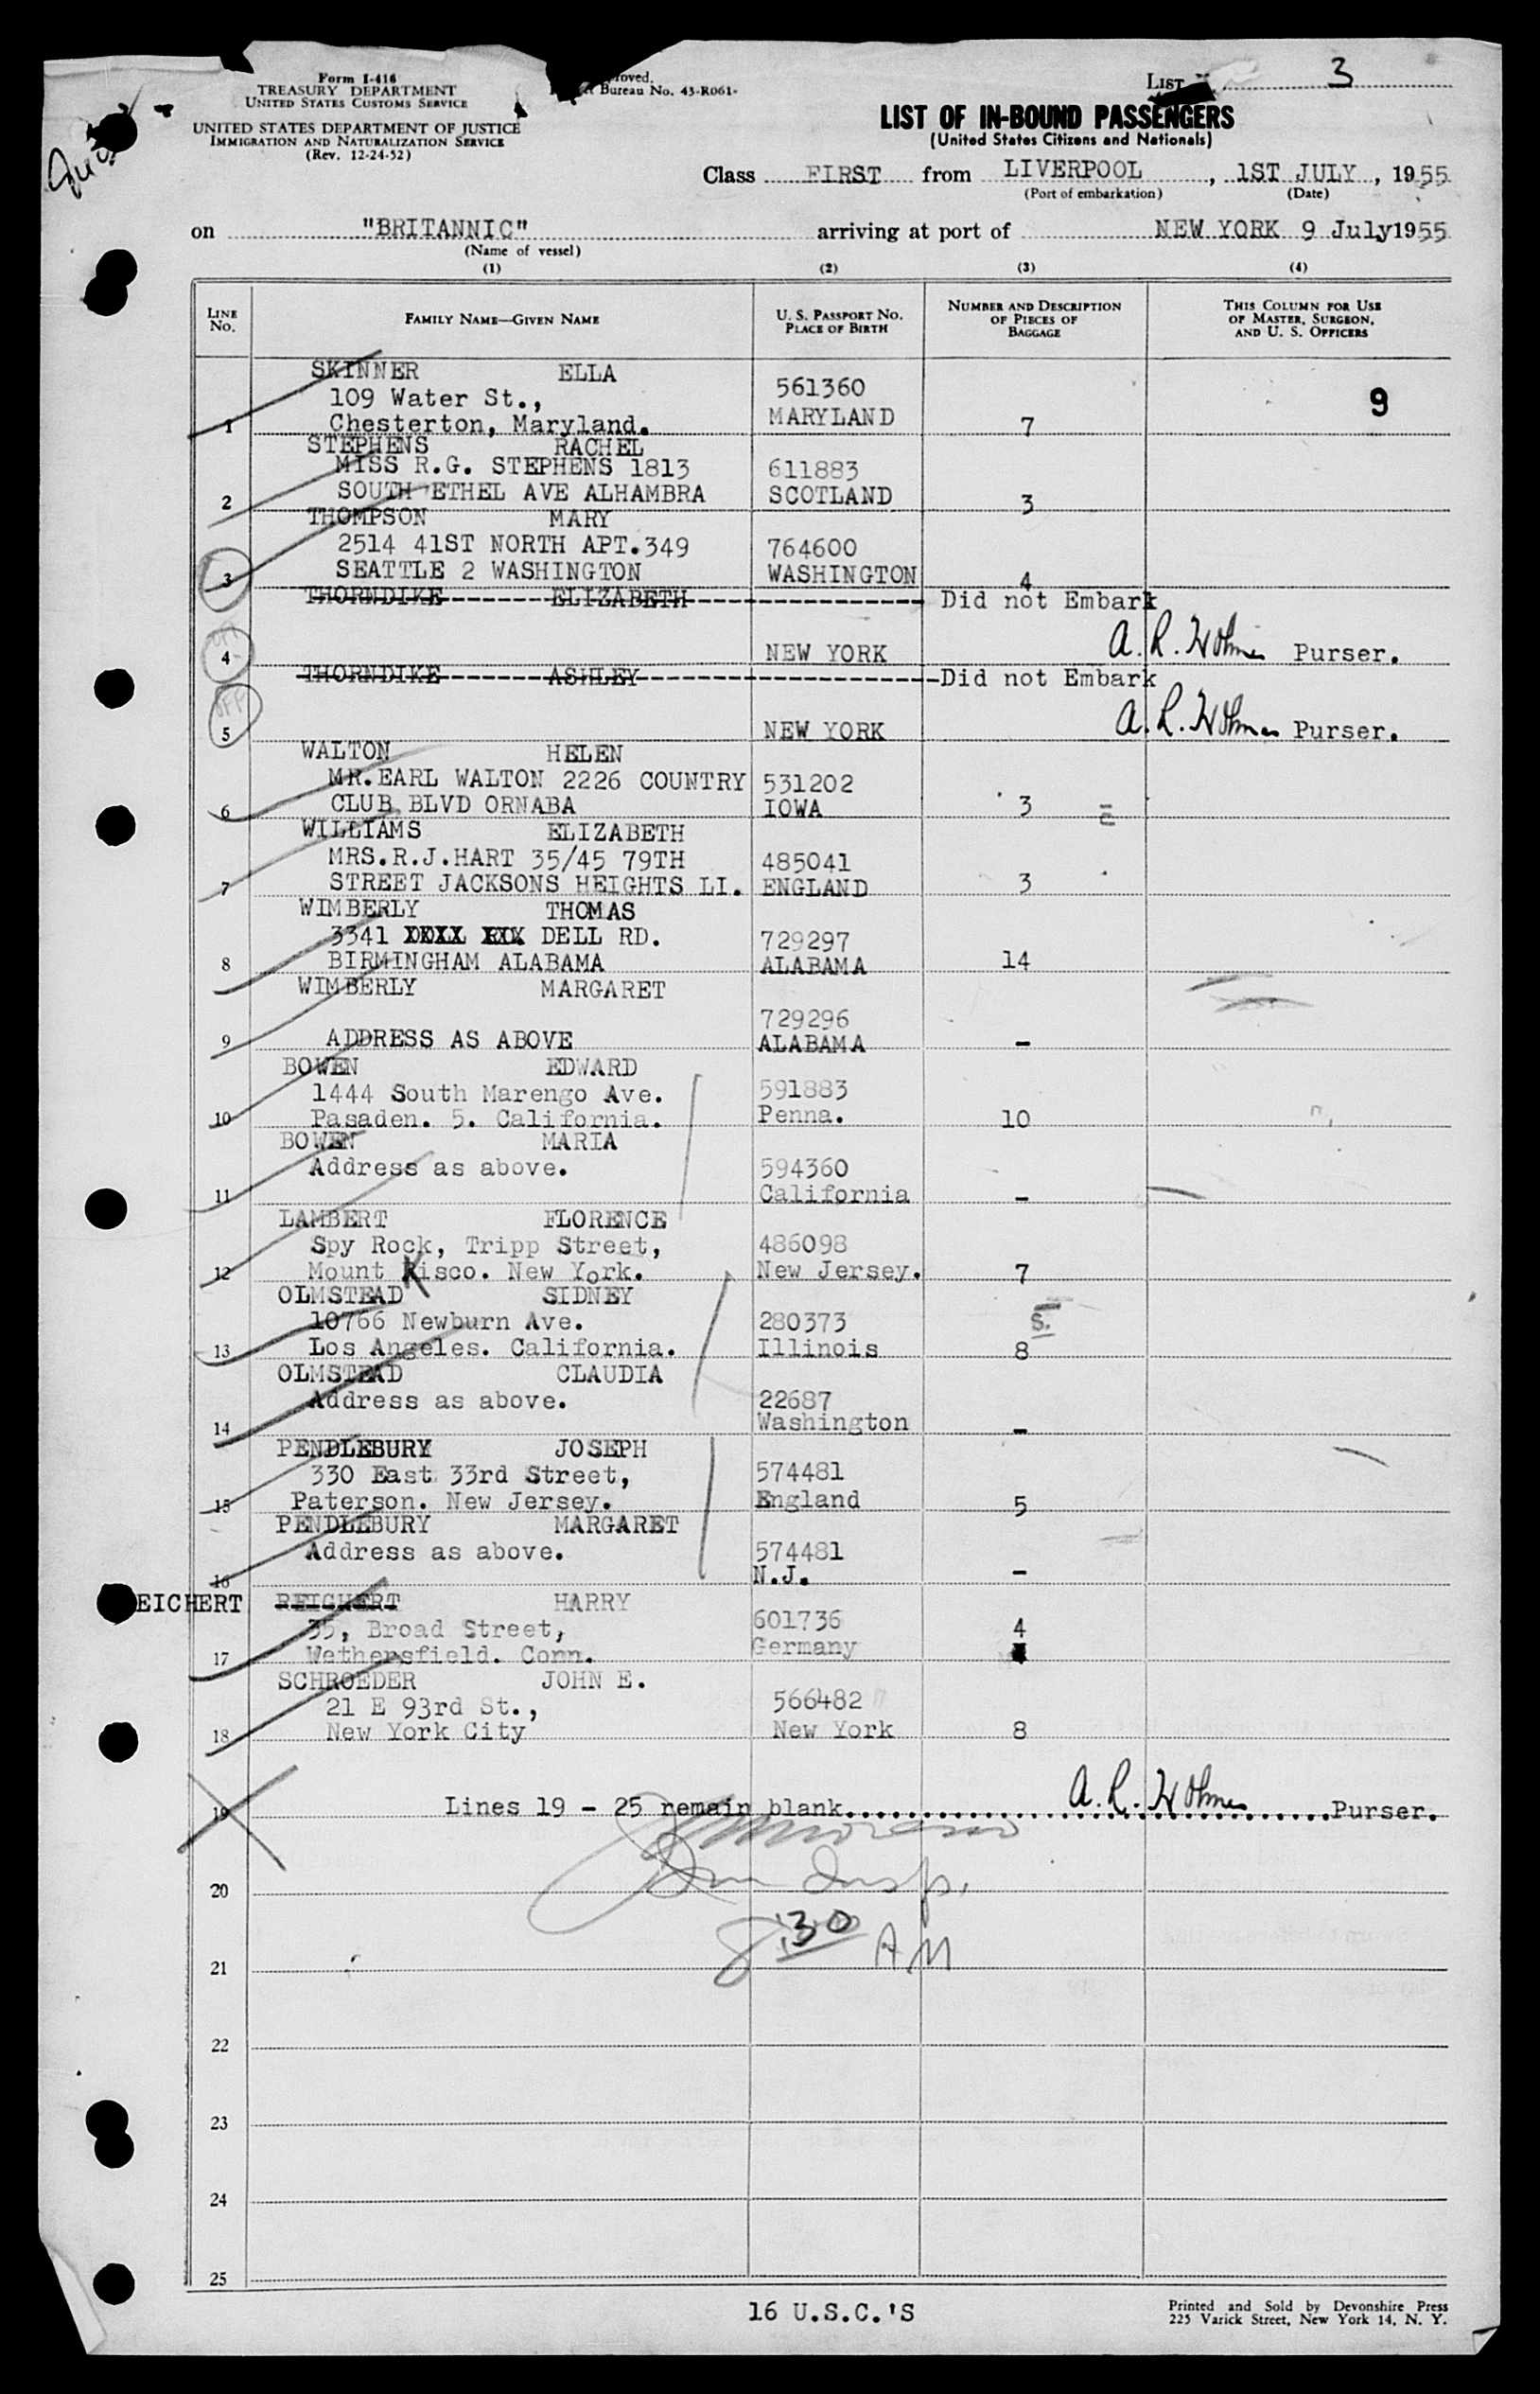 Form I-416
TREASURY DEPARTMENT
UNITED STATES CUSTOMS SERVICE
UNITED STATES DEPARTMENT OF JUSTICE
IMMIGRATION AND NATURALIZATION SERVICE
(Rev. 12-24-52)
Bureau No. 43-R061-
LIST 3
LIST OF IN-BOUND PASSENGERS
(United States Citizens and Nationals)
Class FIRST from LIVERPOOL, 1ST JULY, 1955
(Port of embarkation) (Date)
on "BRITANNIC" arriving at port of NEW YORK 9 July 1955
(Name of vessel)
(1) (2) (3) (4)
LINE No. FAMILY NAME—GIVEN NAME U. S. PASSPORT NO. PLACE OF BIRTH NUMBER AND DESCRIPTION OF PIECES OF BAGGAGE THIS COLUMN FOR USE OF MASTER, SURGEON, AND U. S. OFFICERS
SKINNER ELLA
109 Water St., 561360 9
1 Chesterton, Maryland. MARYLAND 7
STEPHENS RACHEL
MISS R.G. STEPHENS 1813 611883
2 SOUTH ETHEL AVE ALHAMBRA SCOTLAND 3
THOMPSON MARY
2514 41ST NORTH APT.349 764600
3 SEATTLE 2 WASHINGTON WASHINGTON 4
THORNDIKE ELIZABETH Did not Embark
4 NEW YORK A. R. Holmes Purser.
THORNDIKE ASHLEY Did not Embark
OFF
5 NEW YORK A. R. Holmes Purser.
WALTON HELEN
MR.EARL WALTON 2226 COUNTRY 531202
6 CLUB BLVD ORNABA IOWA 3
WILLIAMS ELIZABETH
MRS.R.J.HART 35/45 79TH 485041
7 STREET JACKSONS HEIGHTS LI. ENGLAND 3
WIMBERLY THOMAS
3341 DELL RD. 729297
8 BIRMINGHAM ALABAMA ALABAMA 14
WIMBERLY MARGARET
729296
9 ADDRESS AS ABOVE ALABAMA -
BOWEN EDWARD
1444 South Marengo Ave. 591883
10 Pasaden. 5. California. Penna. 10
BOWEN MARIA
Address as above. 594360
11 California -
LAMBERT FLORENCE
Spy Rock, Tripp Street, 486098
12 Mount Kisco. New York. New Jersey. 7
OLMSTEAD SIDNEY
10766 Newburn Ave. 280373 S.
13 Los Angeles. California. Illinois 8
OLMSTEAD CLAUDIA
Address as above. 22687
14 Washington -
PENDLEBURY JOSEPH
330 East 33rd Street, 574481
15 Paterson. New Jersey. England 5
PENDLEBURY MARGARET
Address as above. 574481
16 N.J. -
EICHERT REICHERT HARRY
35, Broad Street, 601736 4
17 Wethersfield. Conn. Germany
SCHROEDER JOHN E.
21 E 93rd St., 566482
18 New York City New York 8
19 Lines 19 - 25 remain blank. A. R. Holmes Purser.
20 Imm Insp.
8:30 AM
21
22
23
24
25
16 U.S.C.'S
Printed and Sold by Devonshire Press
225 Varick Street, New York 14, N. Y.